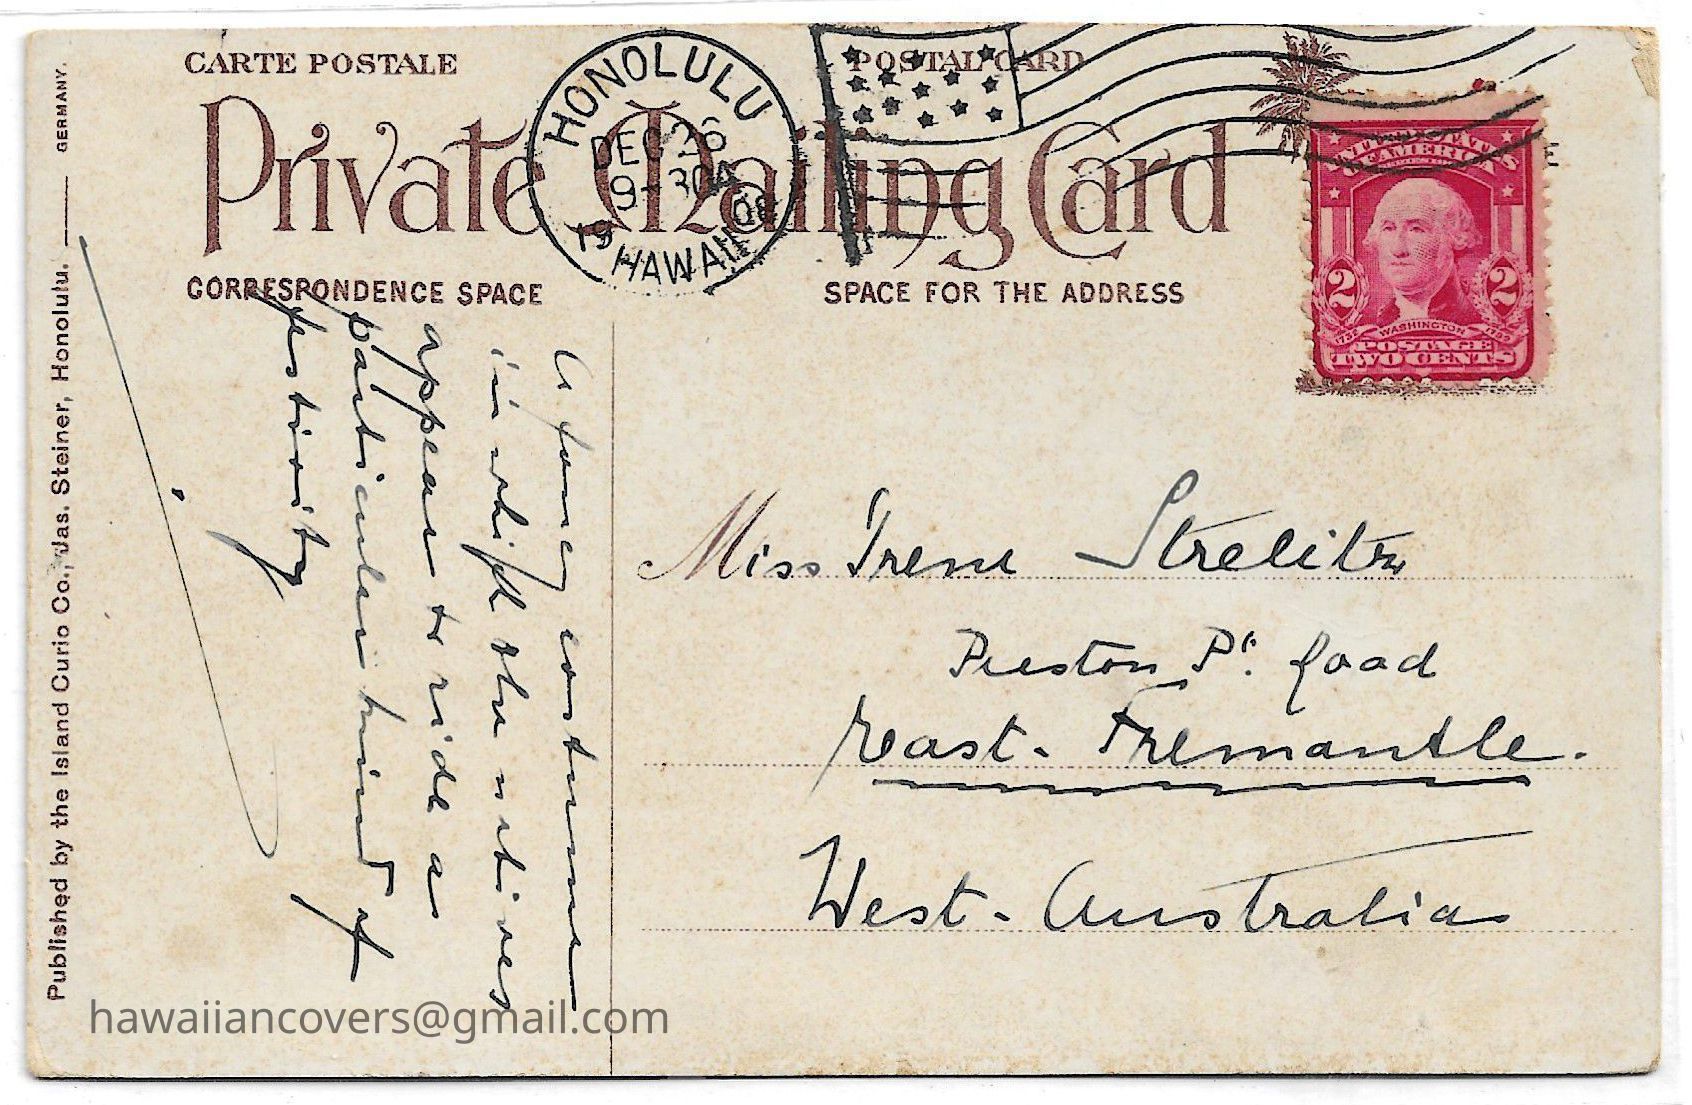 CARTE POSTALE
POSTAL CARD
Private Mailing Card
CORRESPONDENCE SPACE
SPACE FOR THE ADDRESS
HONOLULU
DEC 26
9-30A
19 08
HAWAII
UNITED STATES
OF AMERICA
2 2
1732 WASHINGTON 1799
POSTAGE
TWO CENTS
A fancy costume
in which the natives
appear to ride as
particular kind of
festivity
Miss Irene Strelitz
Preston Pt. Road
East - Fremantle.
West - Australia
Published by the Island Curio Co., Jas. Steiner, Honolulu. GERMANY.
hawaiiancovers@gmail.com